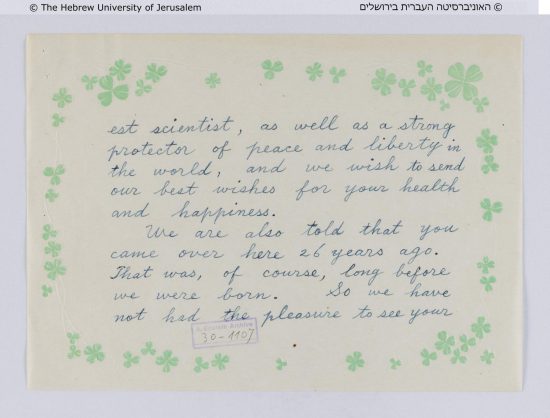 © The Hebrew University of Jerusalem
© האוניברסיטה העברית בירושלים
est scientist, as well as a strong
protector of peace and liberty in
the world, and we wish to send
our best wishes for your health
and happiness.
We are also told that you
came over here 26 years ago.
That was, of course, long before
we were born. So we have
not had the pleasure to see your
A. Einstein Archive
30-1107